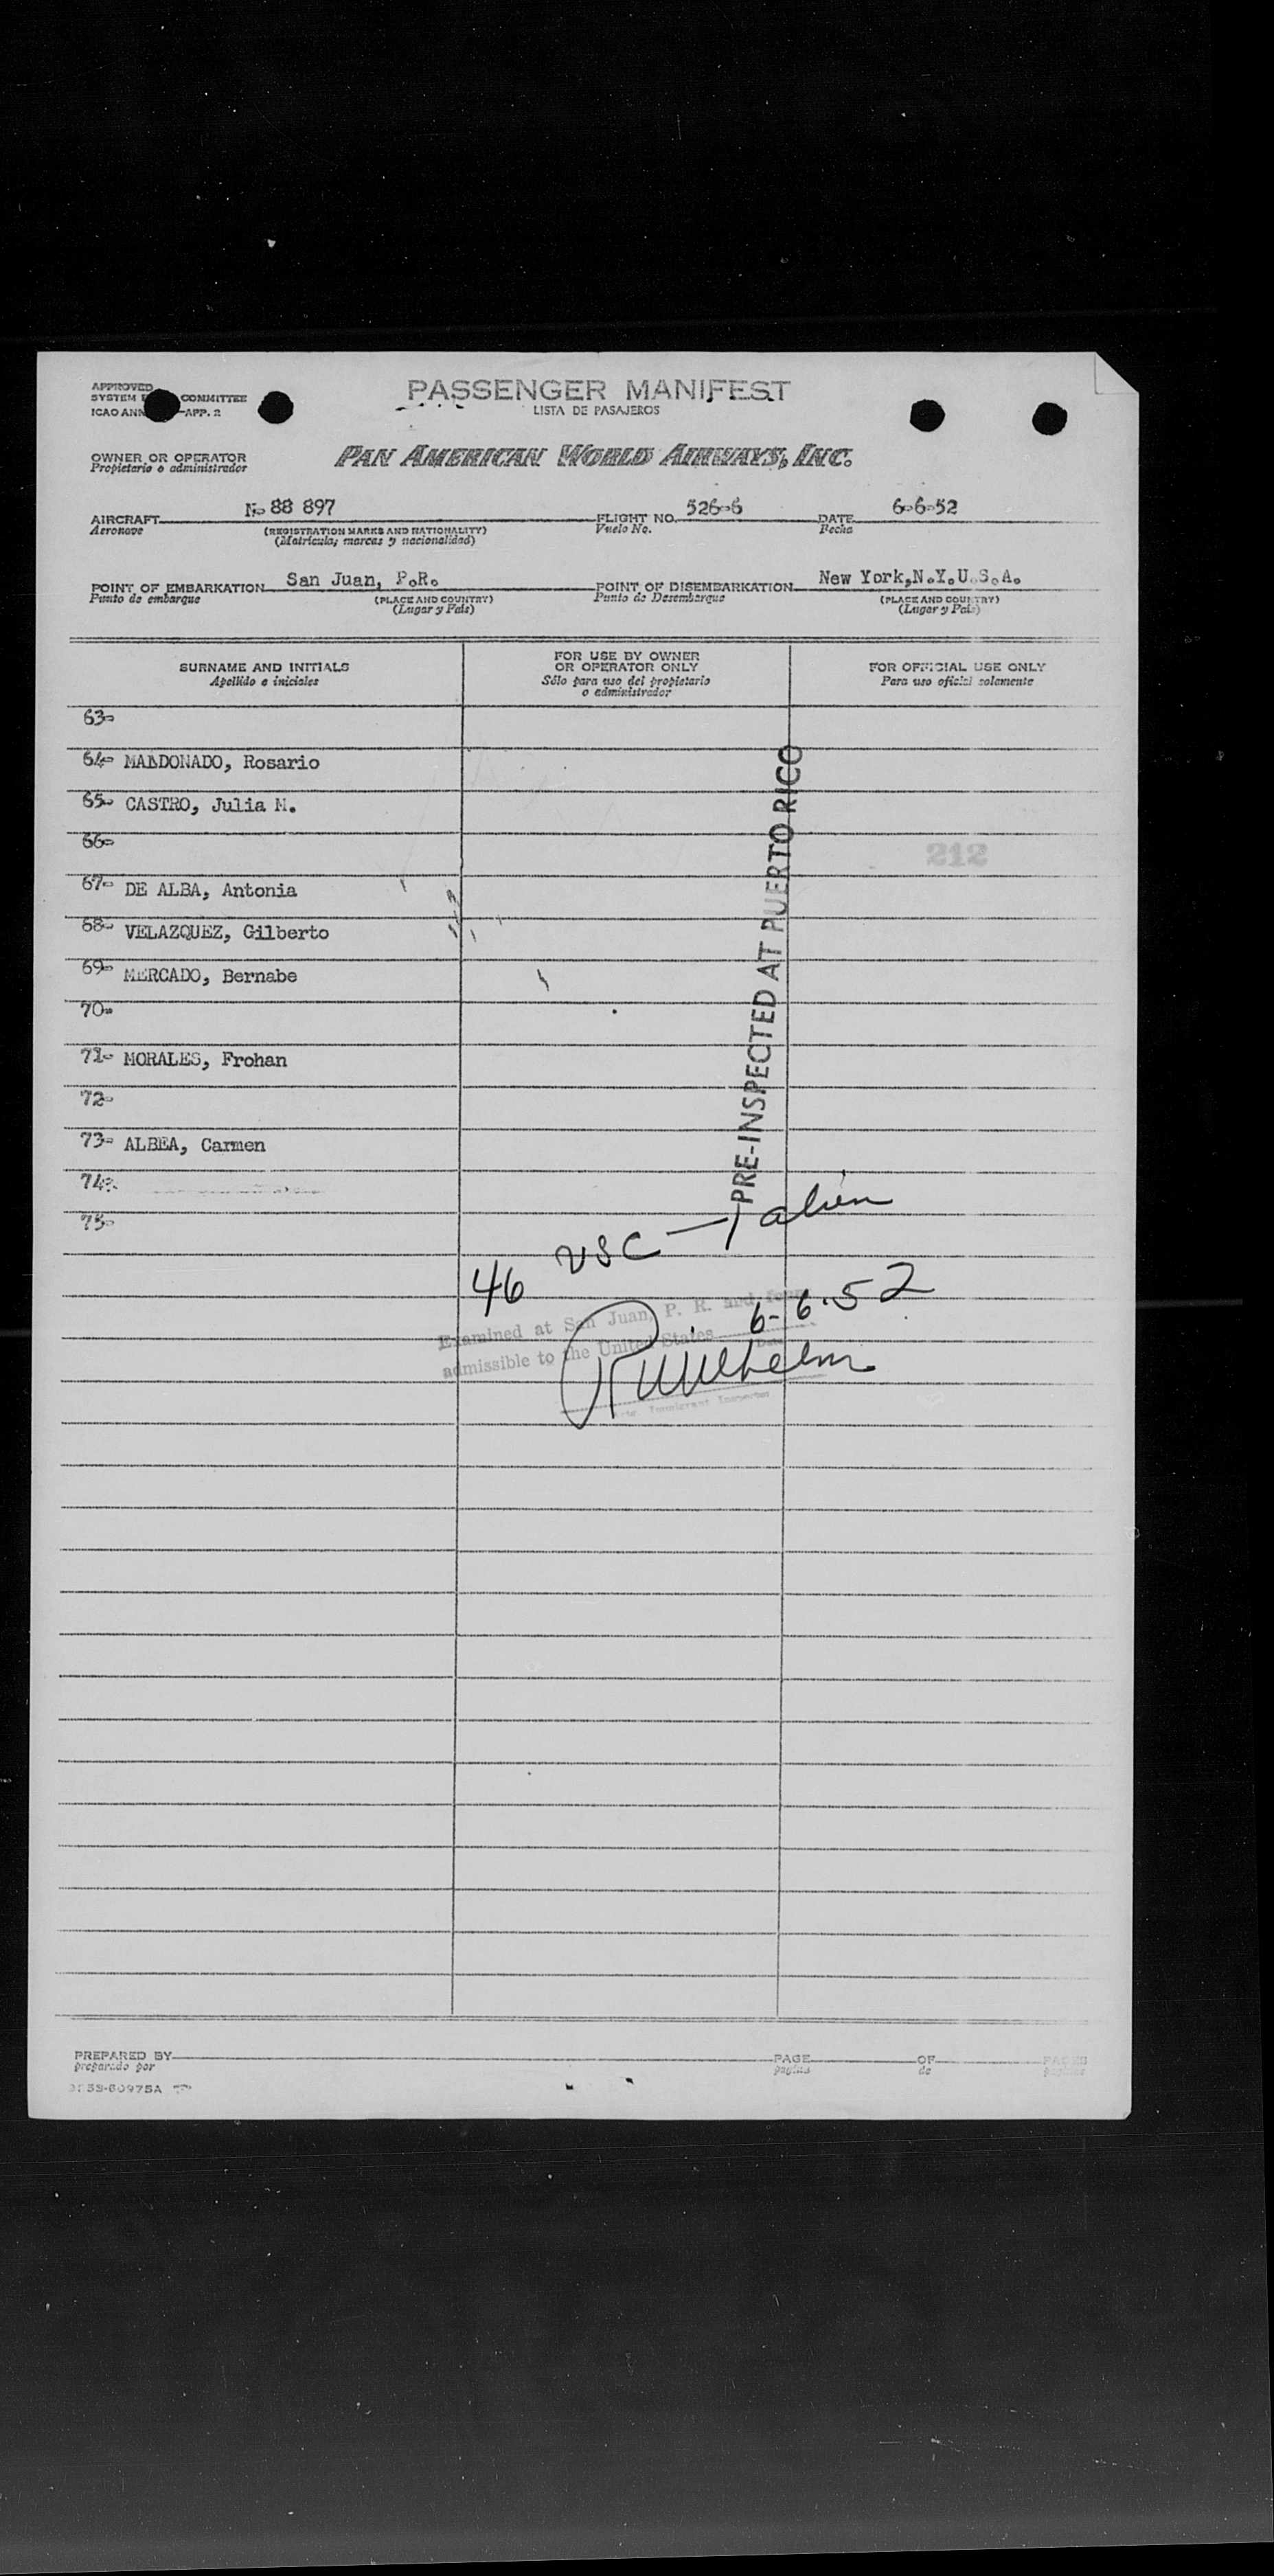 APPROVED
SYSTEM COMMITTEE
ICAO ANN -APP. 2
PASSENGER MANIFEST
LISTA DE PASAJEROS
OWNER OR OPERATOR
Propietario o administrador
PAN AMERICAN WORLD AIRWAYS, INC.
AIRCRAFT N-88 897 FLIGHT NO. 526-6 DATE 6-6-52
Aeronave (REGISTRATION MARKS AND NATIONALITY) Vuelo No. Fecha
(Matricula, marcas y nacionalidad)
POINT OF EMBARKATION San Juan, P.R. POINT OF DISEMBARKATION New York,N.Y.U.S.A.
Punto de embarque (PLACE AND COUNTRY) Punto de Desembarque (PLACE AND COUNTRY)
(Lugar y País) (Lugar y País)
SURNAME AND INITIALS
Apellido e iniciales
FOR USE BY OWNER
OR OPERATOR ONLY
Sólo para uso del propietario
o administrador
FOR OFFICIAL USE ONLY
Para uso oficial solamente
63-
64- MALDONADO, Rosario
65- CASTRO, Julia M.
66-
212
67- DE ALBA, Antonia
68- VELAZQUEZ, Gilberto
69- MERCADO, Bernabe
70-
71- MORALES, Frohan
72-
73- ALBEA, Carmen
74-
75-
PRE-INSPECTED AT PUERTO RICO
46 USC — 1 alien
6-6-52
Examined at San Juan, P. R. and
admissible to the United States Date
R Wilhelm
Immigrant Inspector
PREPARED BY PAGE OF PAGES
preparado por pagina de paginas